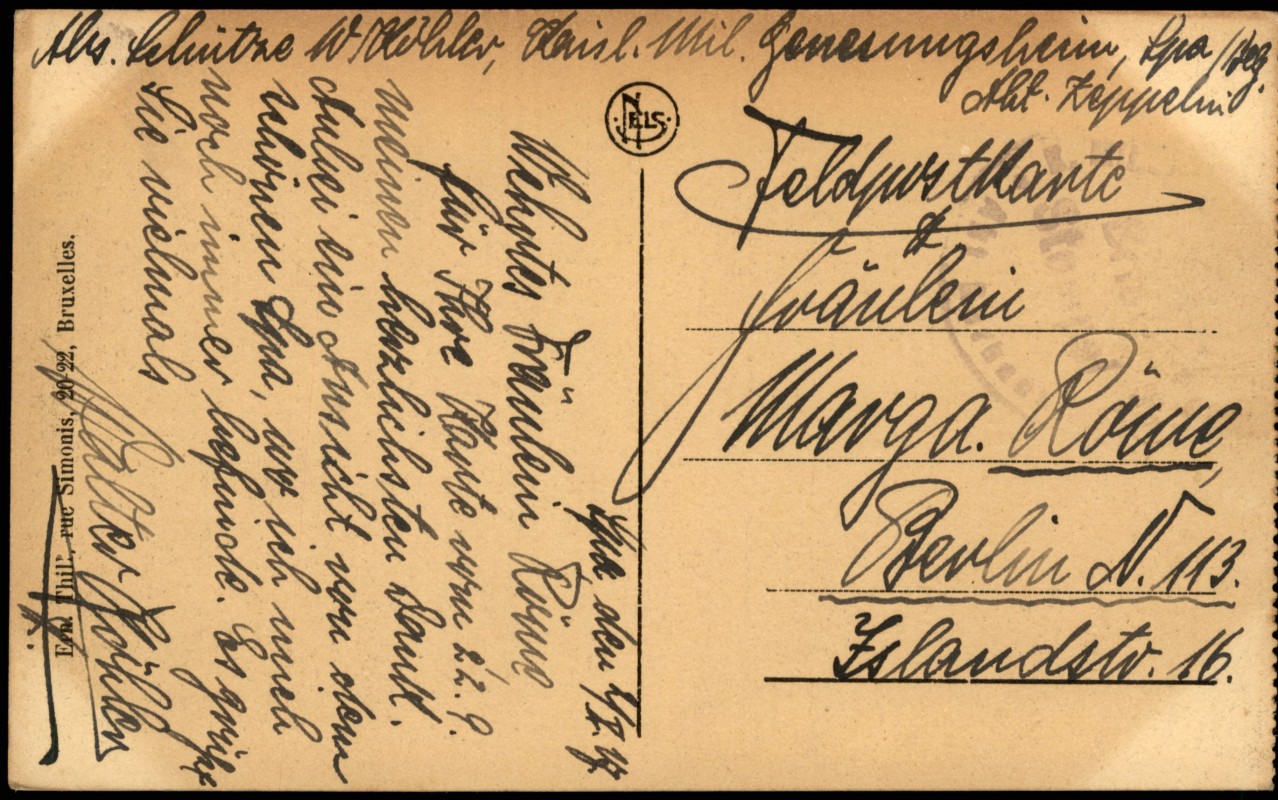 Abs. Schütze W. Köhler, Kaisl. Mil. Genesungsheim, Spa / Belg.
Abt. Zeppelin
NELS
Feldpostkarte
Fräulein
Marga. Röme,
Berlin N. 113.
Islandstr. 16.
Spa den
Wehrtes Fräulein Röme
für Ihre Karte vom 22. 9.
meinen herzlichsten Dank.
Anbei eine Ansicht von dem
schönen Spa, wo ich mich
noch immer befinde. Es grüßt
Sie vielmals
Walter Köhler
Ern. Thill, rue Simonis, 20-22, Bruxelles.